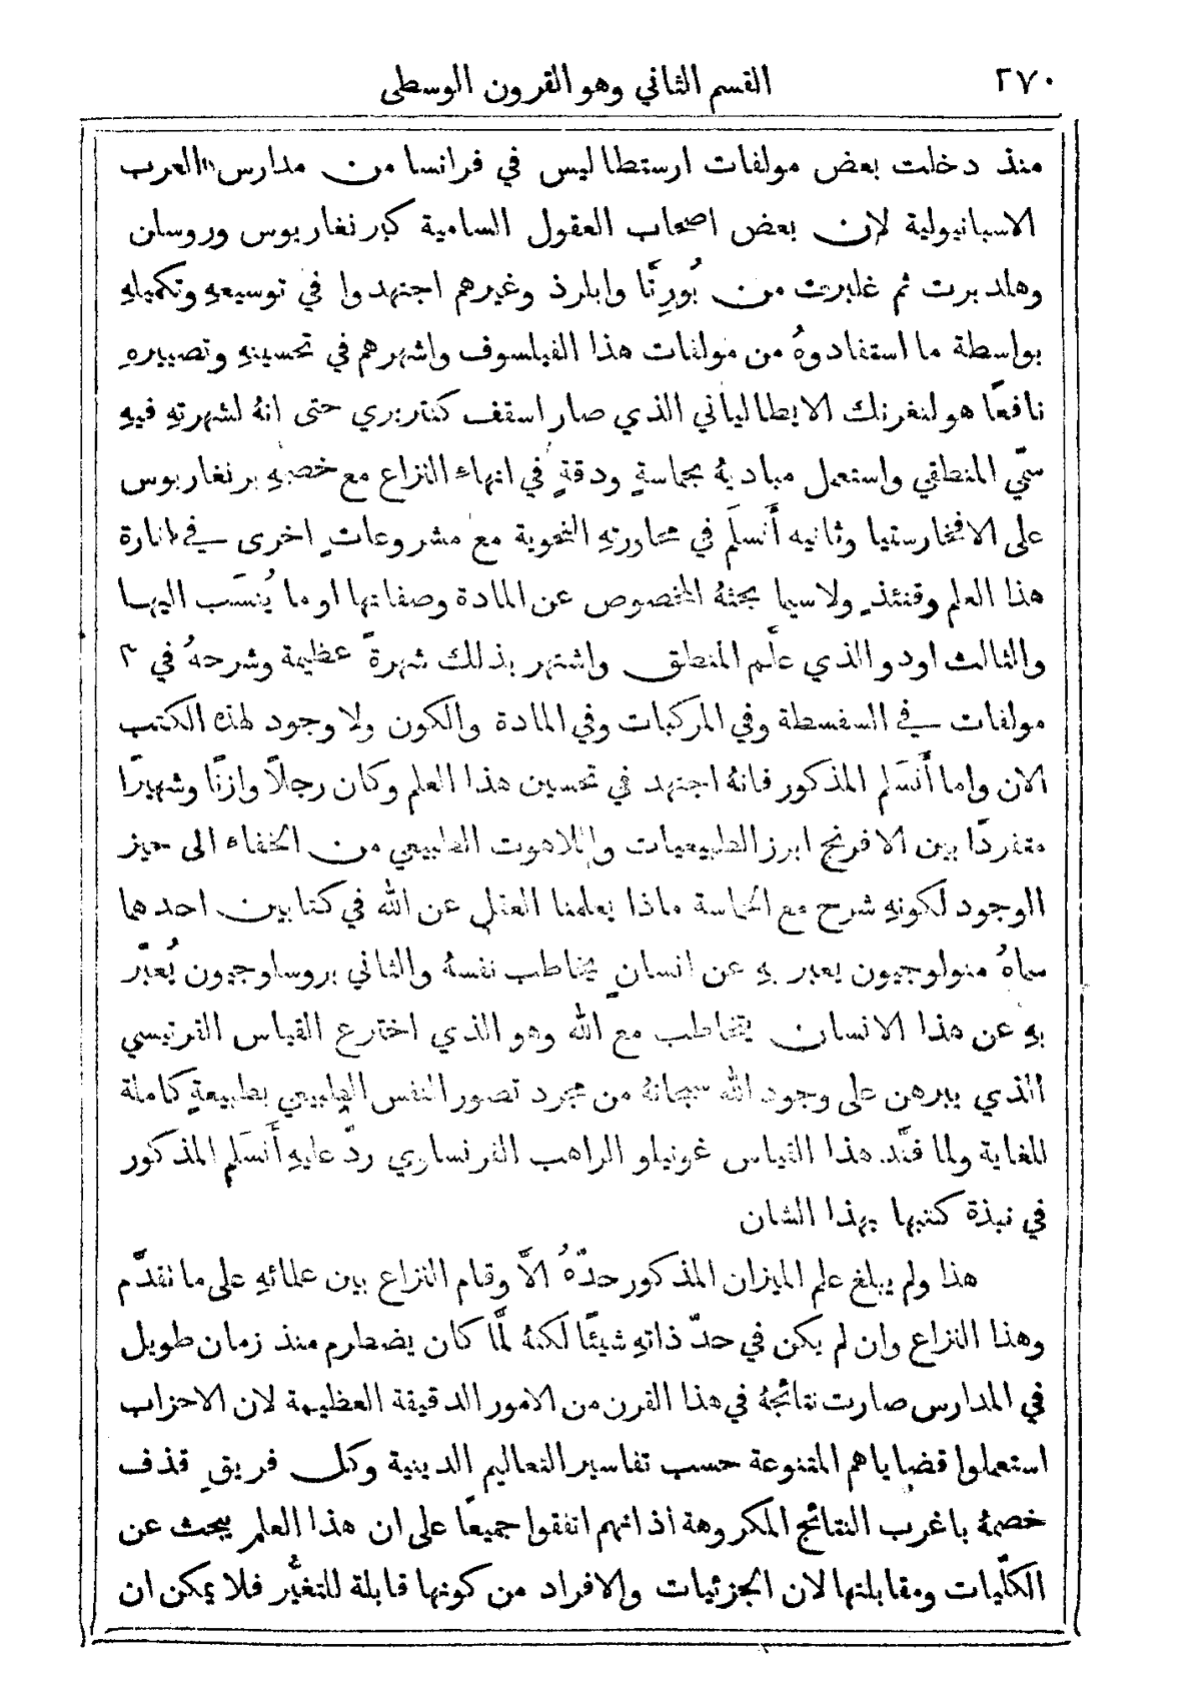 ٢٧٠ القسم الثاني وهو القرون الوسطى
منذ دخلت بعض مولفات ارستطاليس في فرانسا من مدارس العرب
الاسبانيولية لان بعض اصحاب العقول السامية كبرنغاربوس وروسلن
وهلدبرت ثم غلبرت من بُورِتَّا وابلرذ وغيرهم اجتهدوا في توسيعهِ وتكميلهِ
بواسطة ما استفادوهُ من مولفات هذا الفيلسوف واشهرهم في تحسينهِ وتصييرهِ
نافعًا هو لنغرنك الايطالياني الذي صار اسقف كنتربري حتى انهُ لشهرتهِ فيهِ
سمّي المنطقي واستعمل مباديهُ بحماسةٍ ودقةٍ في انهاء النزاع مع خصمهِ برنغاربوس
على الافخارستيا وثانيه أَنسلَم في محاورتهِ النحوية مع مشروعاتٍ اخرى في انارة
هذا العلم وقتئذٍ ولاسيما بحثهُ المخصوص عن المادة وصفاتها او ما يُنسَب اليها
والثالث اودو الذي علَّم المنطق واشتهر بذلك شهرةً عظيمة وشرحهُ في ٣
مولفات في السفسطة وفي المركبات وفي المادة والكون ولا وجود لهذه الكتب
الان واما أَنسَلم المذكور فانهُ اجتهد في تحسين هذا العلم وكان رجلاً وازنًا وشهيرًا
متفردًا بين الافرنج ابرز الطبيعيات واللاهوت الطبيعي من الخفاء الى حيز
الوجود لكونهِ شرح مع الحماسة ماذا يعلمنا العقل عن الله في كتابين احدهما
سماهُ منولوجيون يعبر بهِ عن انسانٍ يخاطب نفسهُ والثاني بروسلوجيون يُعبَّر
بهِ عن هذا الانسان يتخاطب مع الله وهو الذي اخترع القياس القرتيسي
الذي يبرهن على وجود الله سبحانهُ من مجرد تصور النفس الطبيعي بطبيعةٍ كاملة
للغاية ولما فنَّد هذا القياس غونيلو الراهب الفرنساوي ردّ عليهِ أَنسَلم المذكور
في نبذة كتبها بهذا الشان
هذا ولم يبلغ علم الميزان المذكور حدّهُ الاَّ وقام النزاع بين علمائهِ على ما تقدَّم
وهذا النزاع وان لم يكن في حدّ ذاتهِ شيئًا لكنهُ لمَّا كان يضطرم منذ زمان طويل
في المدارس صارت نتائجهُ في هذا القرن من الامور الدقيقة العظيمة لان الاحزاب
استعملوا قضاياهم المتنوعة حسب تفاسير التعاليم الدينية وكل فريقٍ قذف
خصمهُ باغرب النتائج المكروهة اذ انهم اتفقوا جميعًا على ان هذا العلم يبحث عن
الكلّيات ومقابلتها لان الجزئيات والافراد من كونها قابلة للتغيُّر فلا يمكن ان